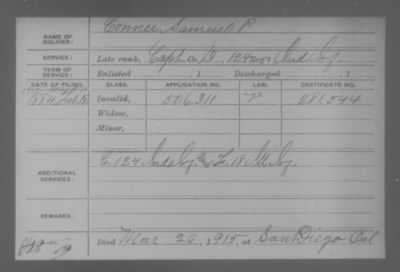 NAME OF SOLDIER: Conner Samuel P.
SERVICE: Late rank, Capt. Co. D, 124 Reg't Ind. Inf.
TERM OF SERVICE: Enlisted , 1 Discharged , 1
DATE OF FILING. CLASS. APPLICATION NO. LAW. CERTIFICATE NO.
1884 Feb. Invalid, 506.311 281.544
Widow,
Minor,
ADDITIONAL SERVICES: C. 124 Ind. Inf. 18 Inf.
REMARKS:
Died Mar 26, 1915, at San Diego Cal